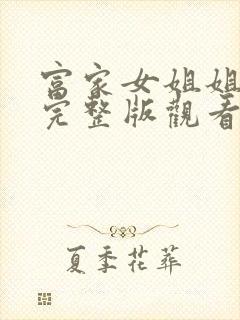 富家女姐姐
完整版觀看
夏季花葬